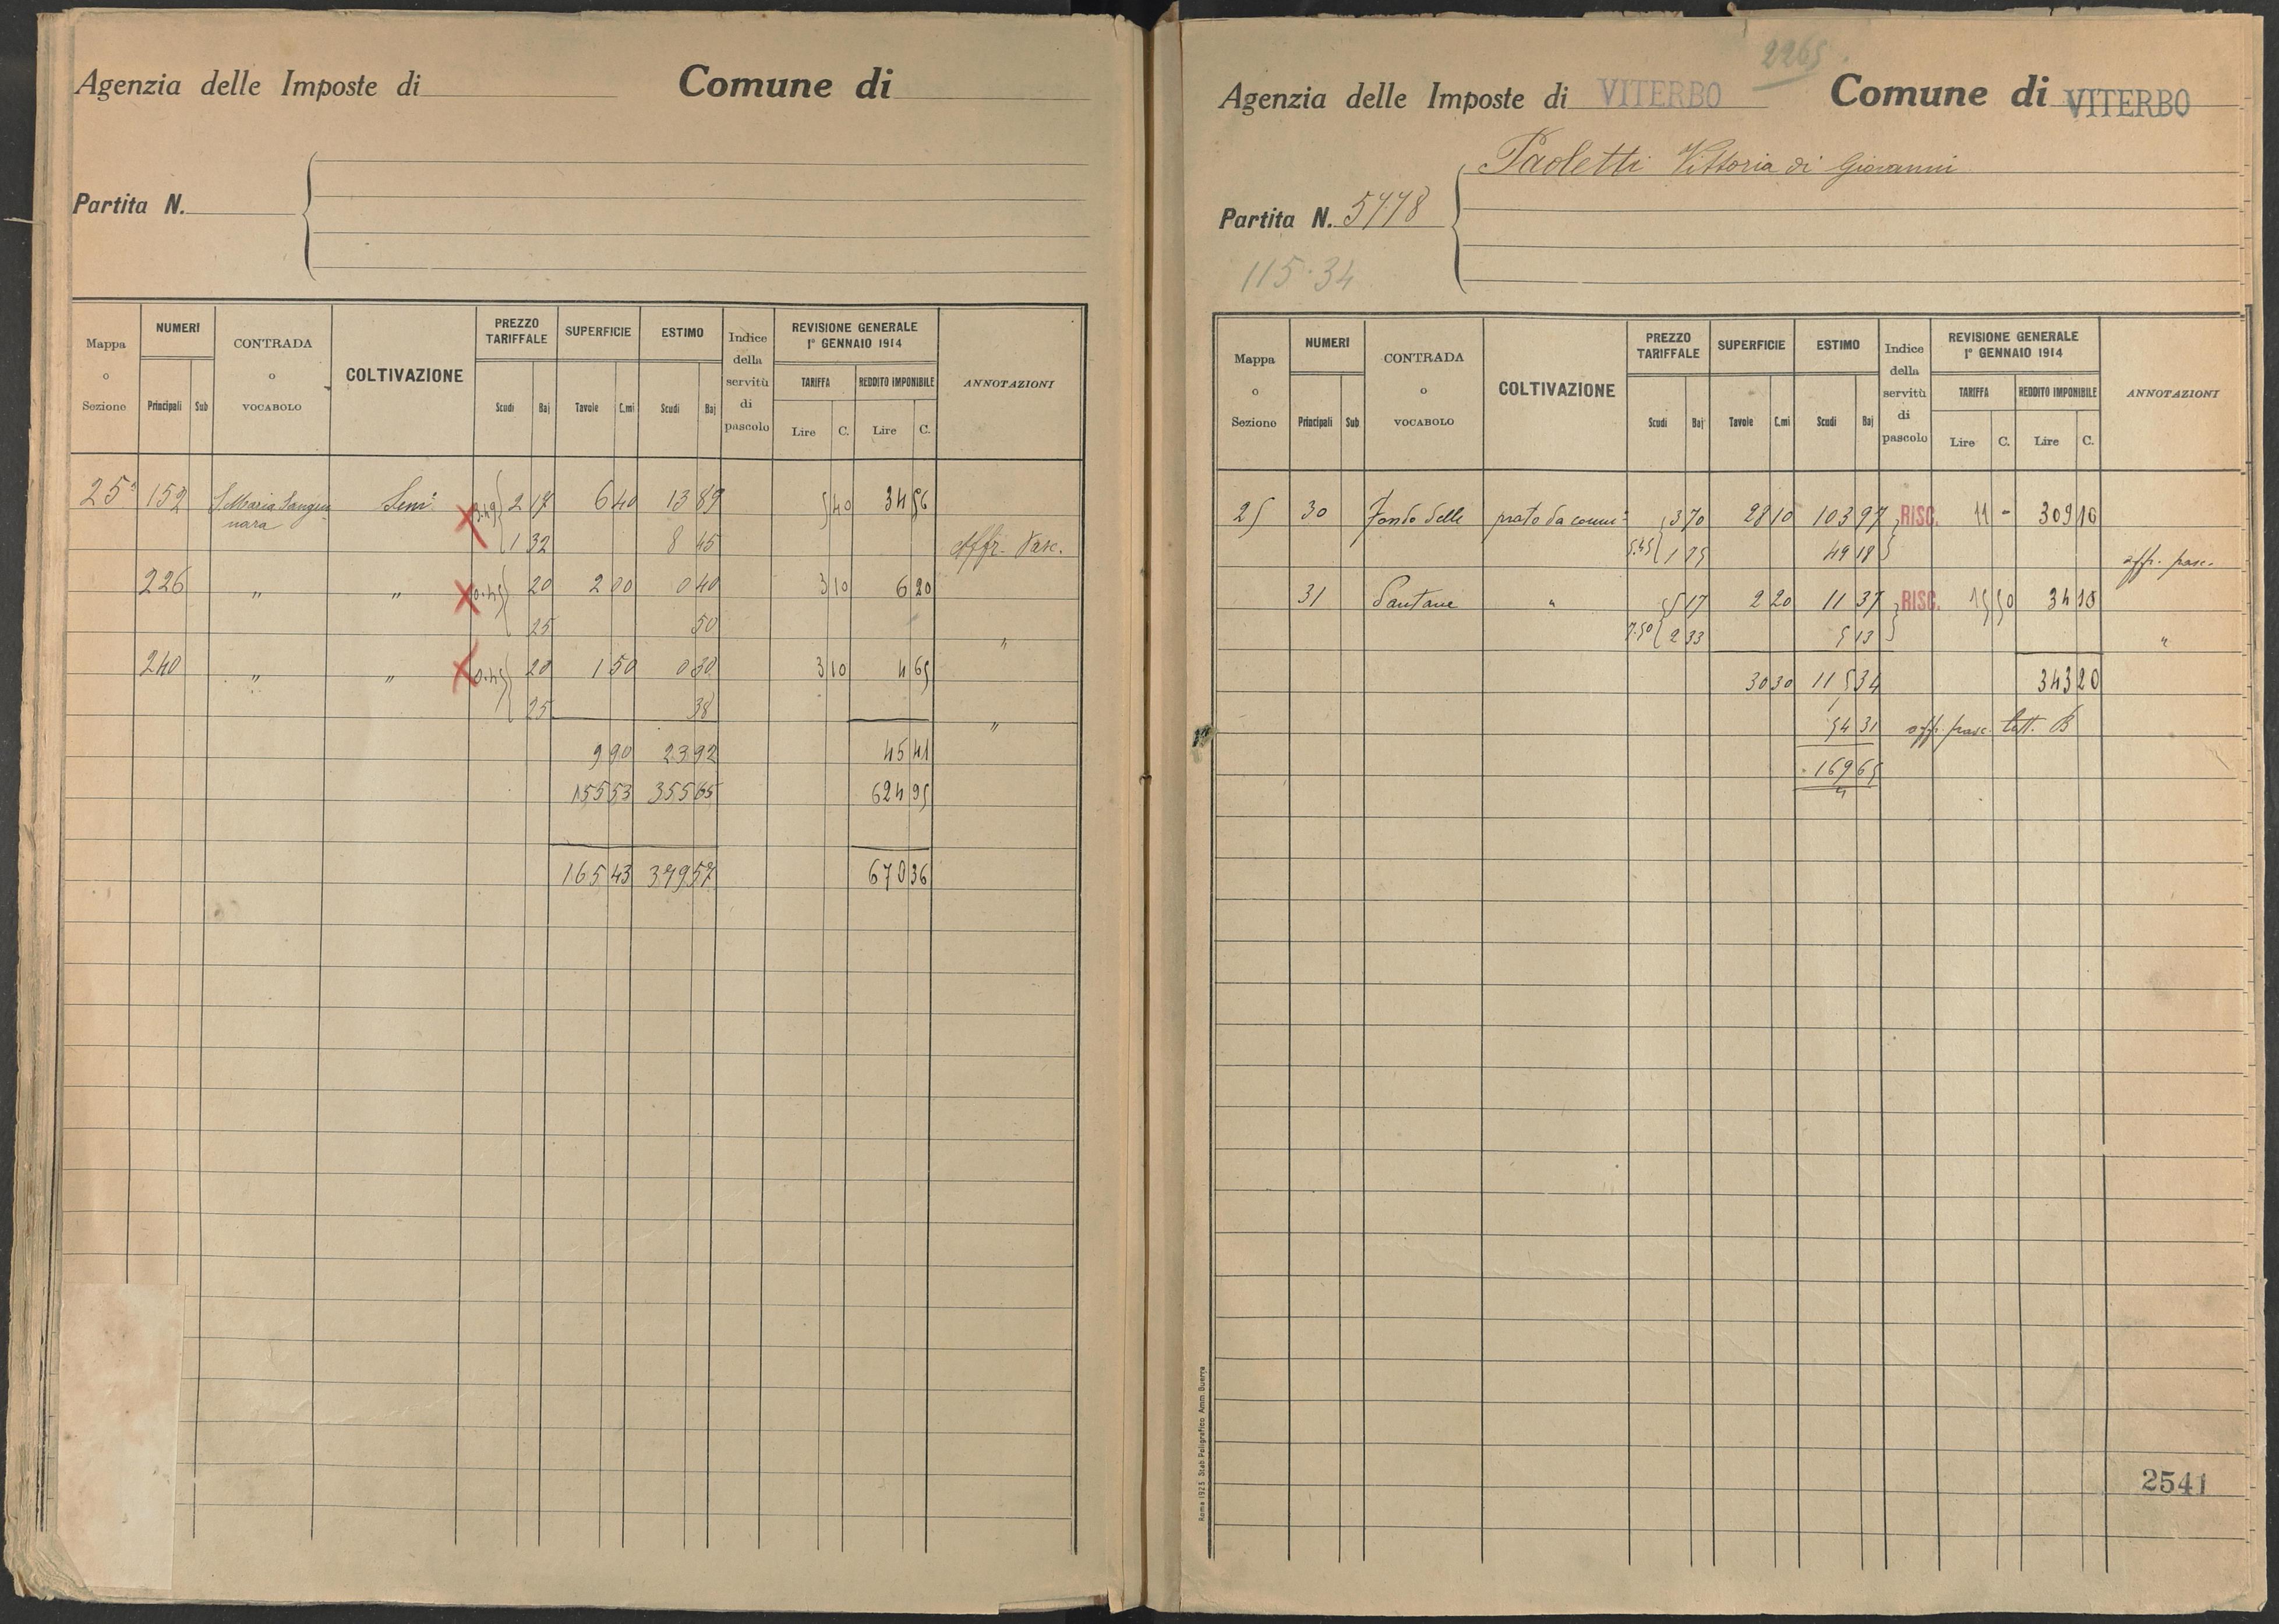 Agenzia delle Imposte di
Comune di
Partita N.
Mappa o Sezione
NUMERI
Principali Sub
CONTRADA o VOCABOLO
COLTIVAZIONE
PREZZO TARIFFALE
Scudi Baj
SUPERFICIE
Tavole C.mi
ESTIMO
Scudi Baj
Indice della servitù di pascolo
REVISIONE GENERALE 1° GENNAIO 1914
TARIFFA
Lire C.
REDDITO IMPONIBILE
Lire C.
ANNOTAZIONI
25 152 S. Maria Sangui Semi 2 17 6 40 13 89 5 40 34 56
nara
1 32 8 45 Affr. Pasc.
226 " " 20 2 00 0 40 3 10 6 20
25 50 "
240 " " 20 1 50 0 30 3 10 4 65
25 38 "
9 90 23 92 45 41
155 53 355 65 624 95
165 43 379 57 670 36
2265
Agenzia delle Imposte di VITERBO
Comune di VITERBO
Paoletti Vittoria di Giovanni
Partita N. 5778
115.34
Mappa o Sezione
NUMERI
Principali Sub
CONTRADA o VOCABOLO
COLTIVAZIONE
PREZZO TARIFFALE
Scudi Baj
SUPERFICIE
Tavole C.mi
ESTIMO
Scudi Baj
Indice della servitù di pascolo
REVISIONE GENERALE 1° GENNAIO 1914
TARIFFA
Lire C.
REDDITO IMPONIBILE
Lire C.
ANNOTAZIONI
25 30 Fondo delle prato da 3 70 28 10 103 97 RISC. 11 - 309 10
5.45 1 75 49 18 affr. pasc.
31 Pantane " 5 17 2 20 11 37 RISC. 15 50 34 10
7.50 2 33 5 13 "
30 30 115 34 343 20
54 31 aff. pasc. lett. B
169 65
Roma 1925 Stab. Poligrafico Amm. Guerra
2541